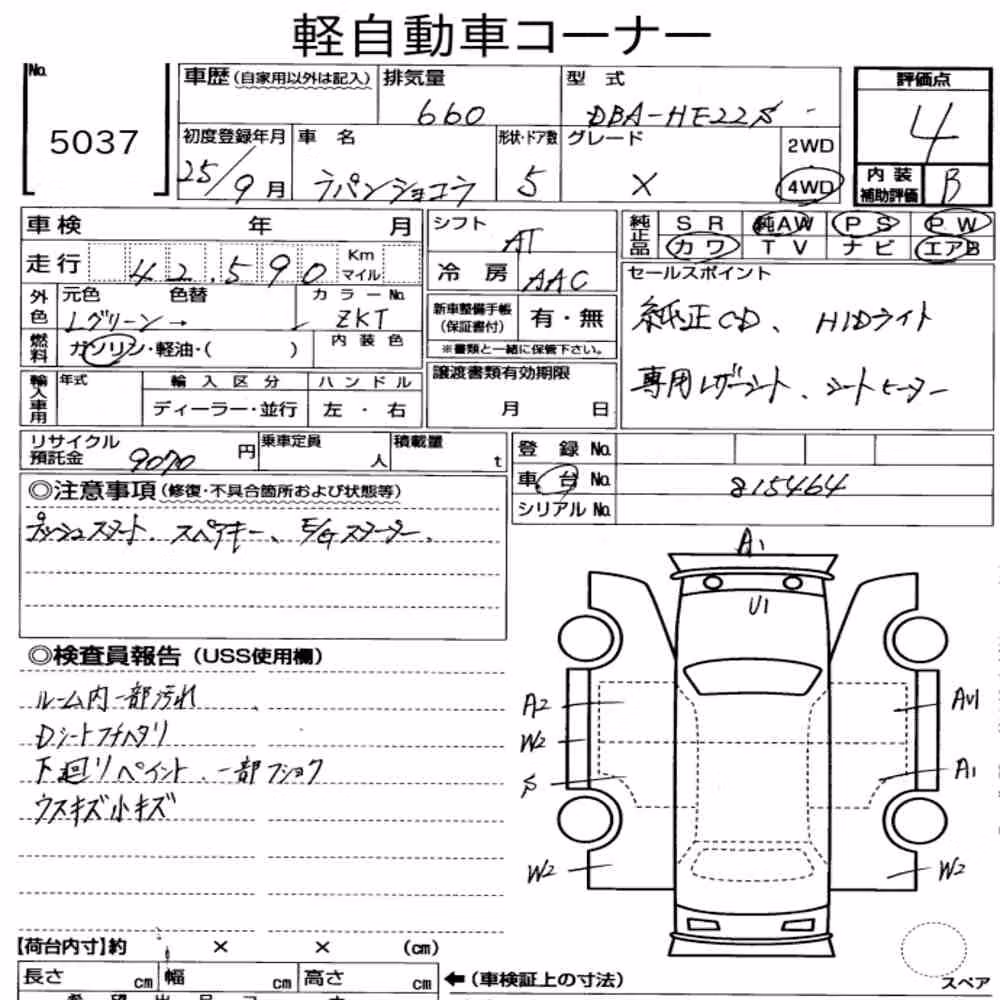 軽自動車コーナー
No. 5037
車歴(自家用以外は記入) 排気量 660 型式 DBA-HE22S
評価点 4
初度登録年月 25/9月 車名 ラパンショコラ 形状・ドア数 5 グレード X 2WD 4WD
内装補助評価 B
車検 年 月 シフト AT
純正品 SR 純AW PS PW
カワ TV ナビ エアB
走行 42,590 Km マイル 冷房 AAC
セールスポイント
外色 元色 Lグリーン→ 色替 カラーNo. ZKT
新車整備手帳(保証書付) 有・無
※書類と一緒に保管下さい。
純正CD、HIDライト
燃料 ガソリン・軽油・( ) 内装色
専用レザーシート、シートヒーター
輸入車用 年式 輸入区分 ハンドル
ディーラー・並行 左・右
譲渡書類有効期限
月 日
リサイクル預託金 9070円 乗車定員 人 積載量 t
登録No.
車台No. 815464
シリアルNo.
◎注意事項(修復・不具合箇所および状態等)
プッシュスタート、スペアキー、E/Gスターター、
◎検査員報告(USS使用欄)
ルーム内一部汚れ
Dシートフチヘタリ
下廻りペイント、一部フショク
ウスキズ小キズ
A1
U1
A2
W2
S
W2
AU1
A1
W2
【荷台内寸】約 × × (cm)
長さ cm 幅 cm 高さ cm ←(車検証上の寸法)
スペア